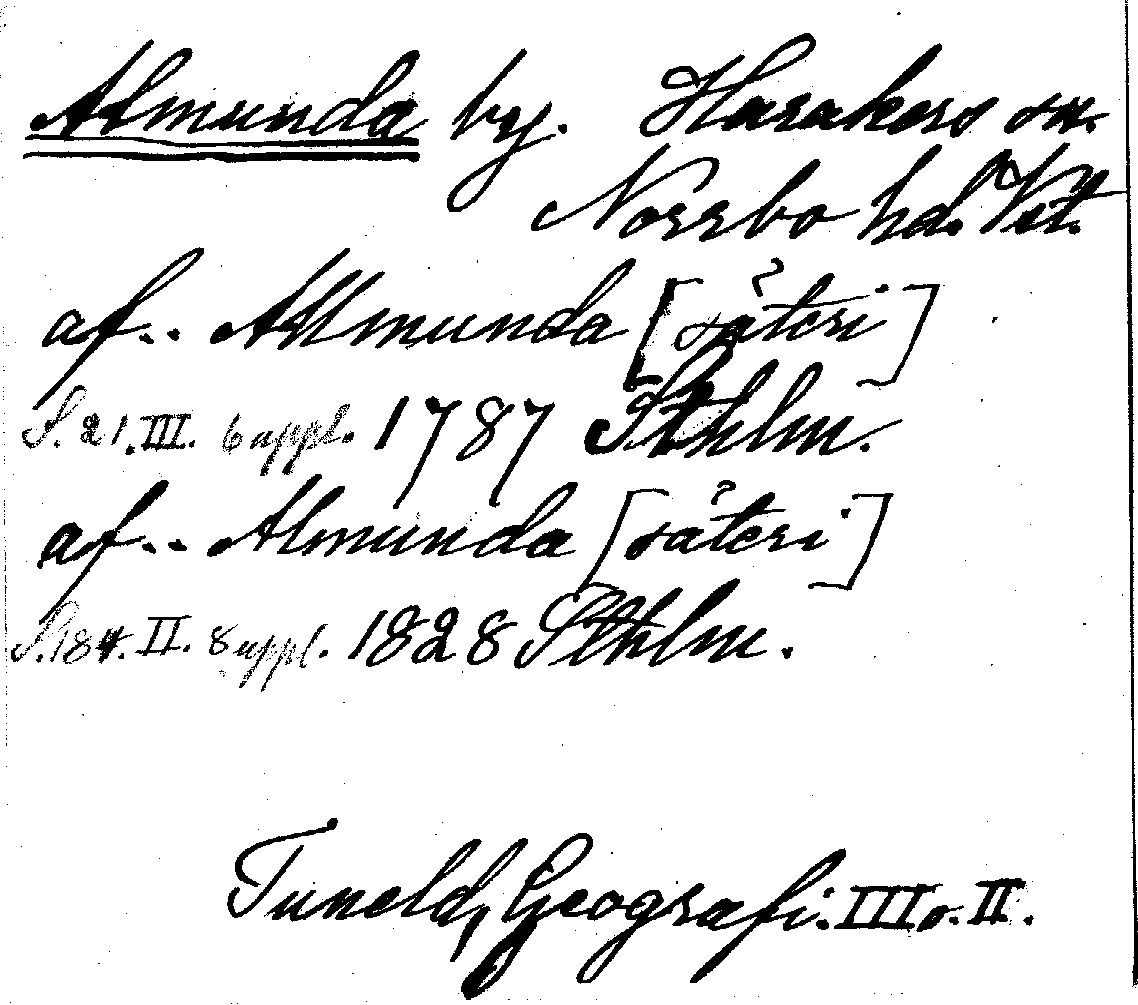 Almunda by. Harakers sn.
Norrbo hd. Vstl.
af.. Allmunda [säteri]
S. 21. III. 6 uppl. 1787 Sthlm.
af... Almunda [säteri]
S. 184. II. 8 uppl. 1828 Sthlm.
Tuneld, Geografi. III o. II.